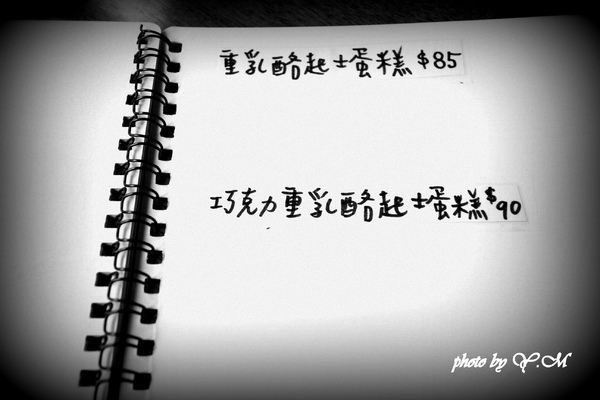 重乳酪起士蛋糕 $85
巧克力重乳酪起士蛋糕 $90
photo by Y.M